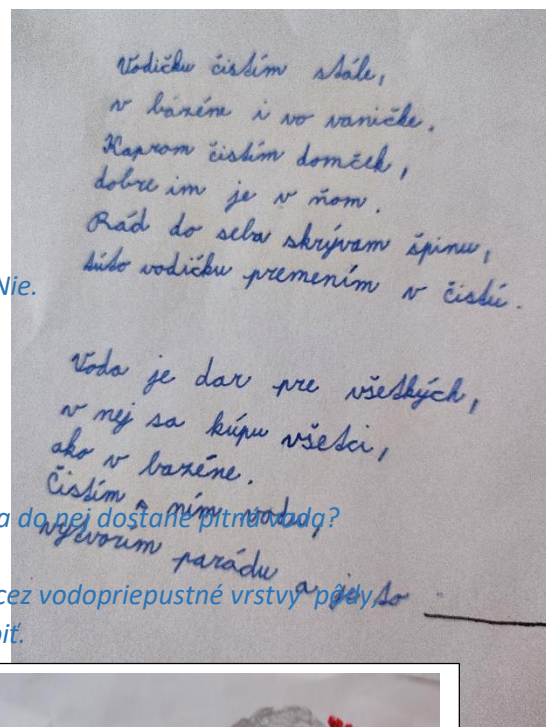 Vodičku čistím stále,
v bazéne i vo vaničke.
Kaprom čistím domček,
dobre im je v ňom.
Rád do seba skrývam špinu,
túto vodičku premením v čistú.
Nie.
Voda je dar pre všetkých,
v nej sa kúpu všetci,
ako v bazéne.
Čistím s ním vodu,
a do nej dostane pitná voda?
vytvorím parádu a je to
cez vodopriepustné vrstvy pôdy,
piť.